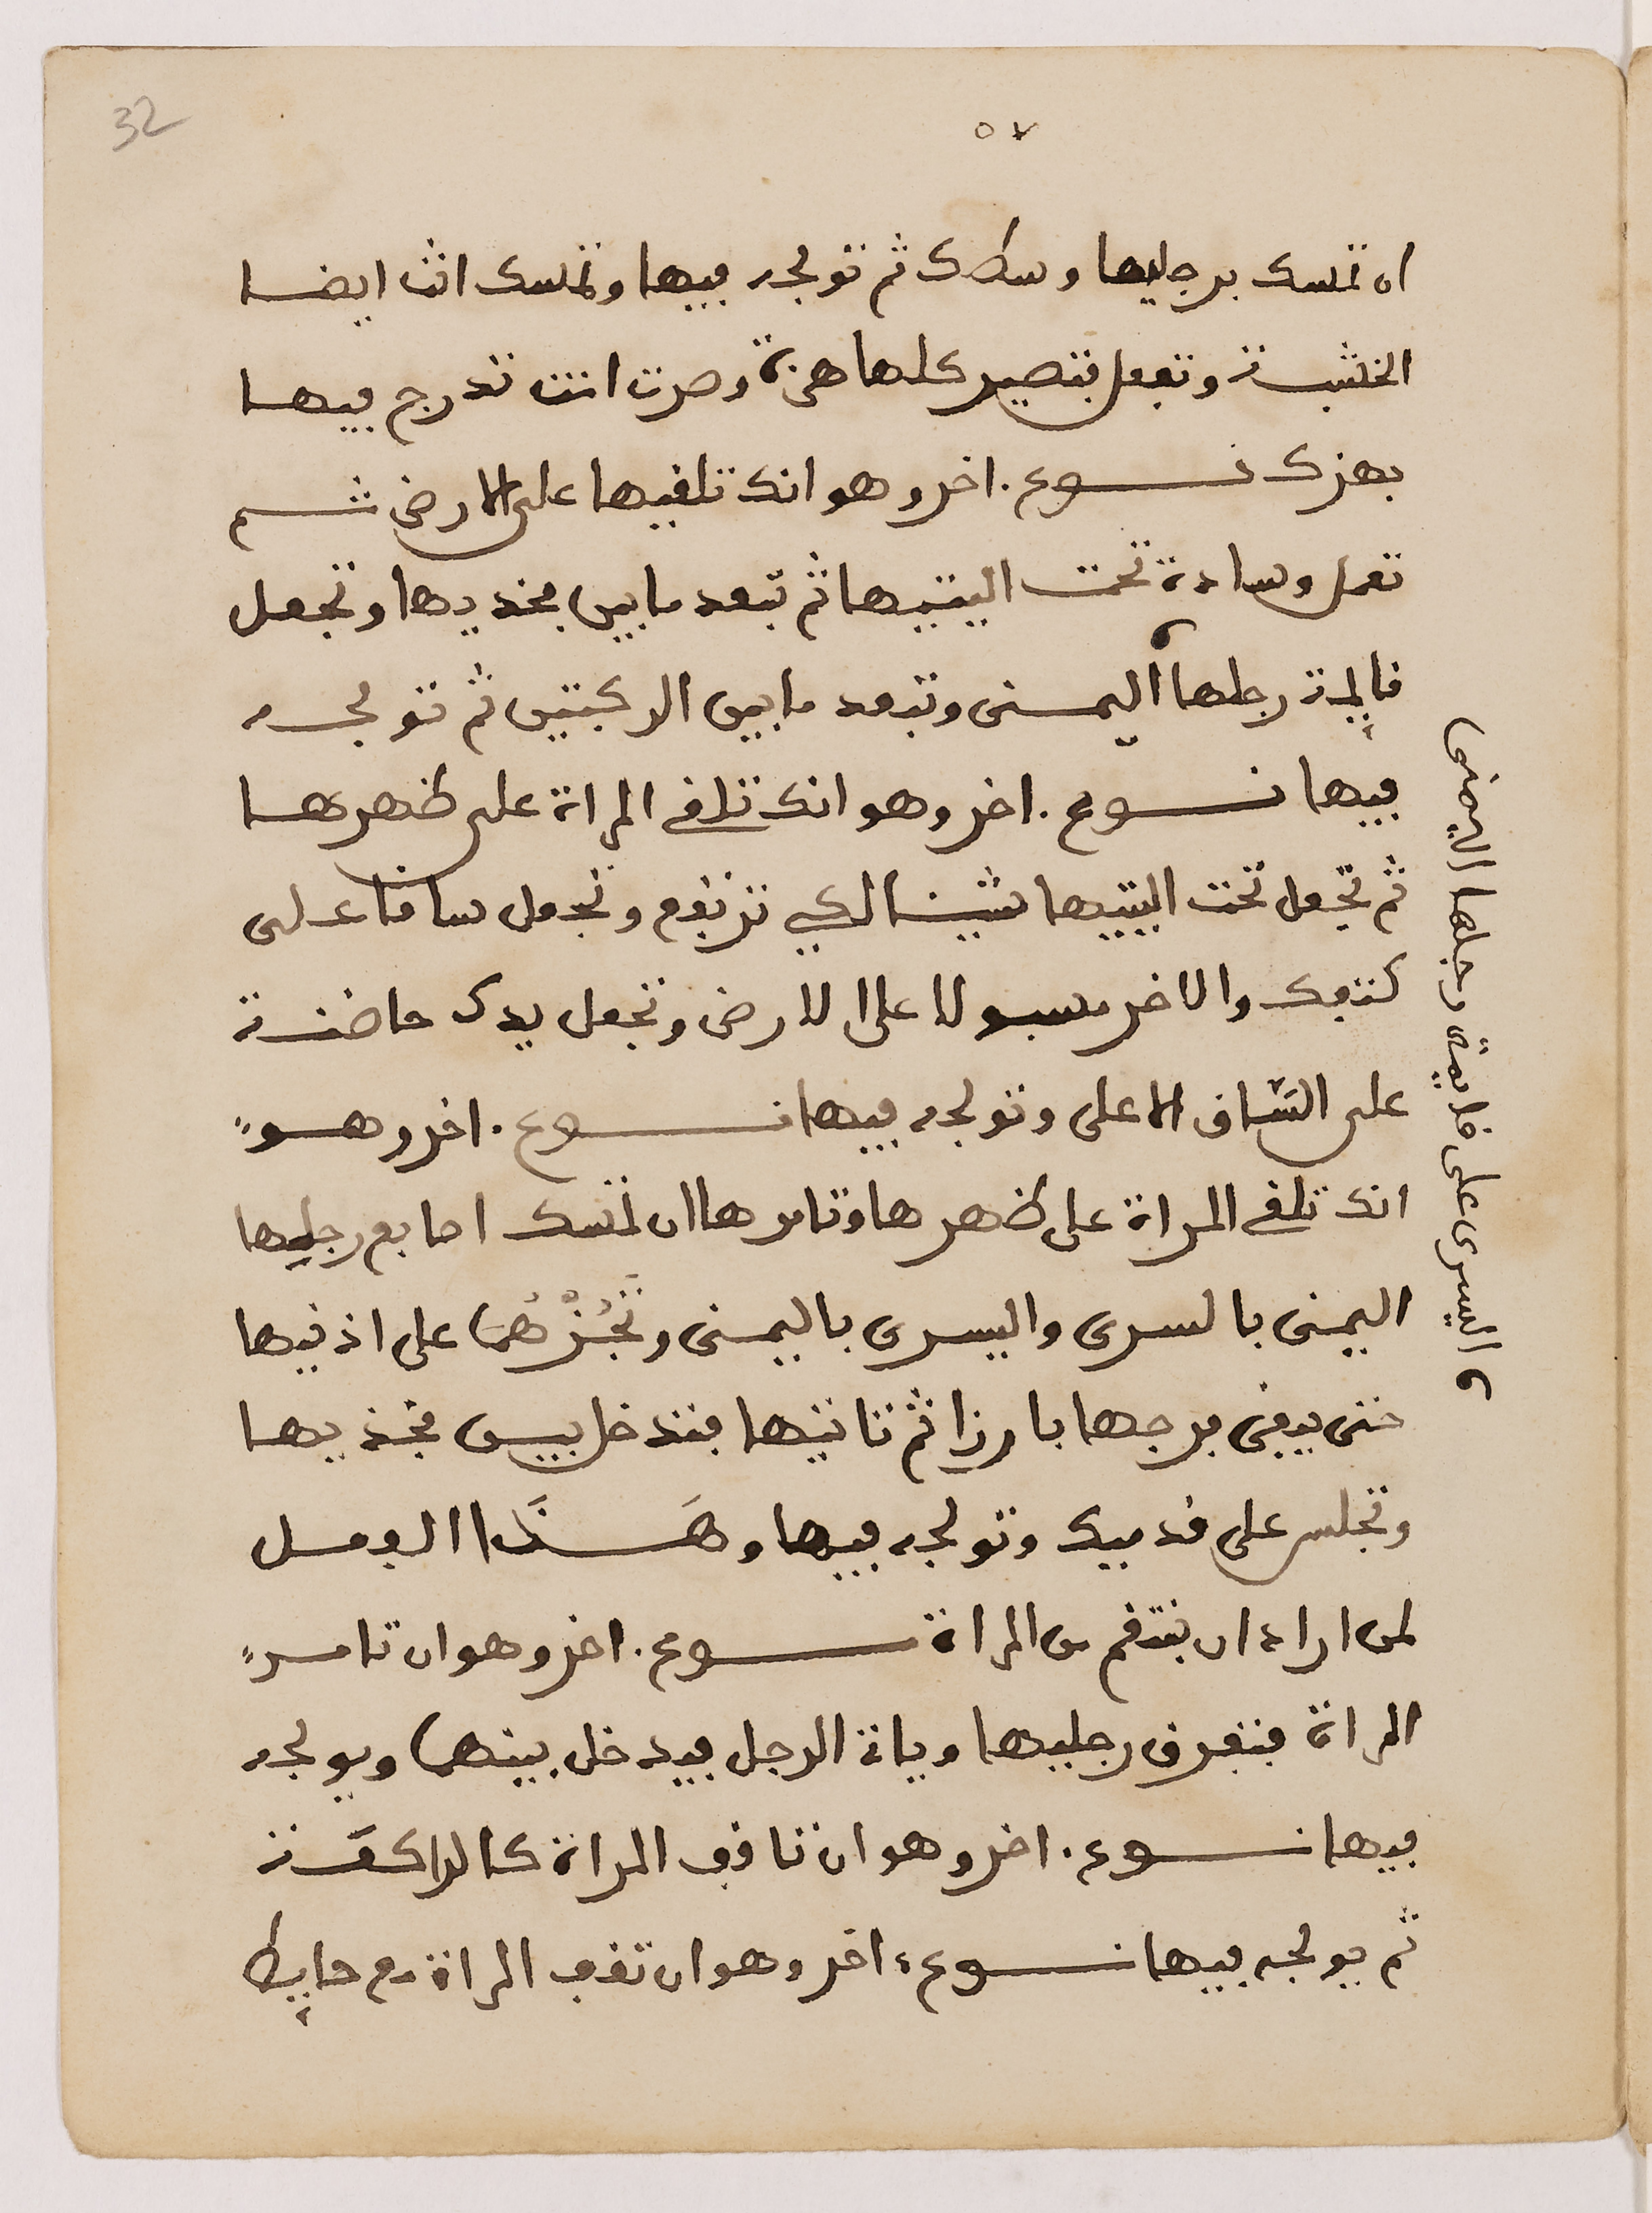 32
٥٧
ان تمسك برجليها وسطك ثم تولجه فيها وتمسك انت ايضا
الخشبة وتفعل فتصير كلها هي وصرت انت تدرج فيها
بهزك نوع . اخر وهو انك تلقيها على الارض ثم
تعمل وسادة تحت اليتيها ثم تبعد ما بين فخديها وتجعل
قايمة رجلها اليمنى وتبعد ما بين الركبتين ثم تولجه
فيها نوع . اخر وهو انك تلقي المراة على ظهرها
ثم تجعل تحت اليتيها شيئا لكي ترتفع وتجعل ساقا على
كتفك والاخر مسبولا على الارض وتجعل يدك حاضنة
على الساق الاعلى وتولجه فيها نوع . اخر وهو
انك تلقي المراة على ظهرها وتامرها ان تمسك اصابع رجليها
اليمنى بالسرى واليسرى باليمنى وتَجُرُّهُمَا على اذنيها
حتى يبقى فرجها بارزا ثم تاتيها فتدخل بين فخذيها
وتجلس على قدميك وتولجه فيها وهَذَا الفعل
لمن اراد ان ينتقم من المراة نوع . اخر وهو ان تامر
المراة فتفرق رجليها وياتي الرجل فيدخل بينهما ويولجه
فيها نوع . اخر وهو ان تاقف المراة كالراكعة
ثم يولجه فيها نوع ، اخر وهو ان تقف المراة مع حايط
و اليسرى على قايمة رجلها اليمنى